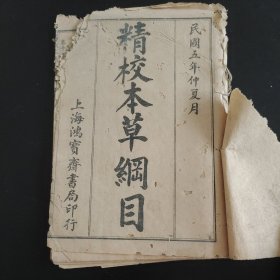 民國五年仲夏月
精校本草綱目
上海鴻寶齋書局印行